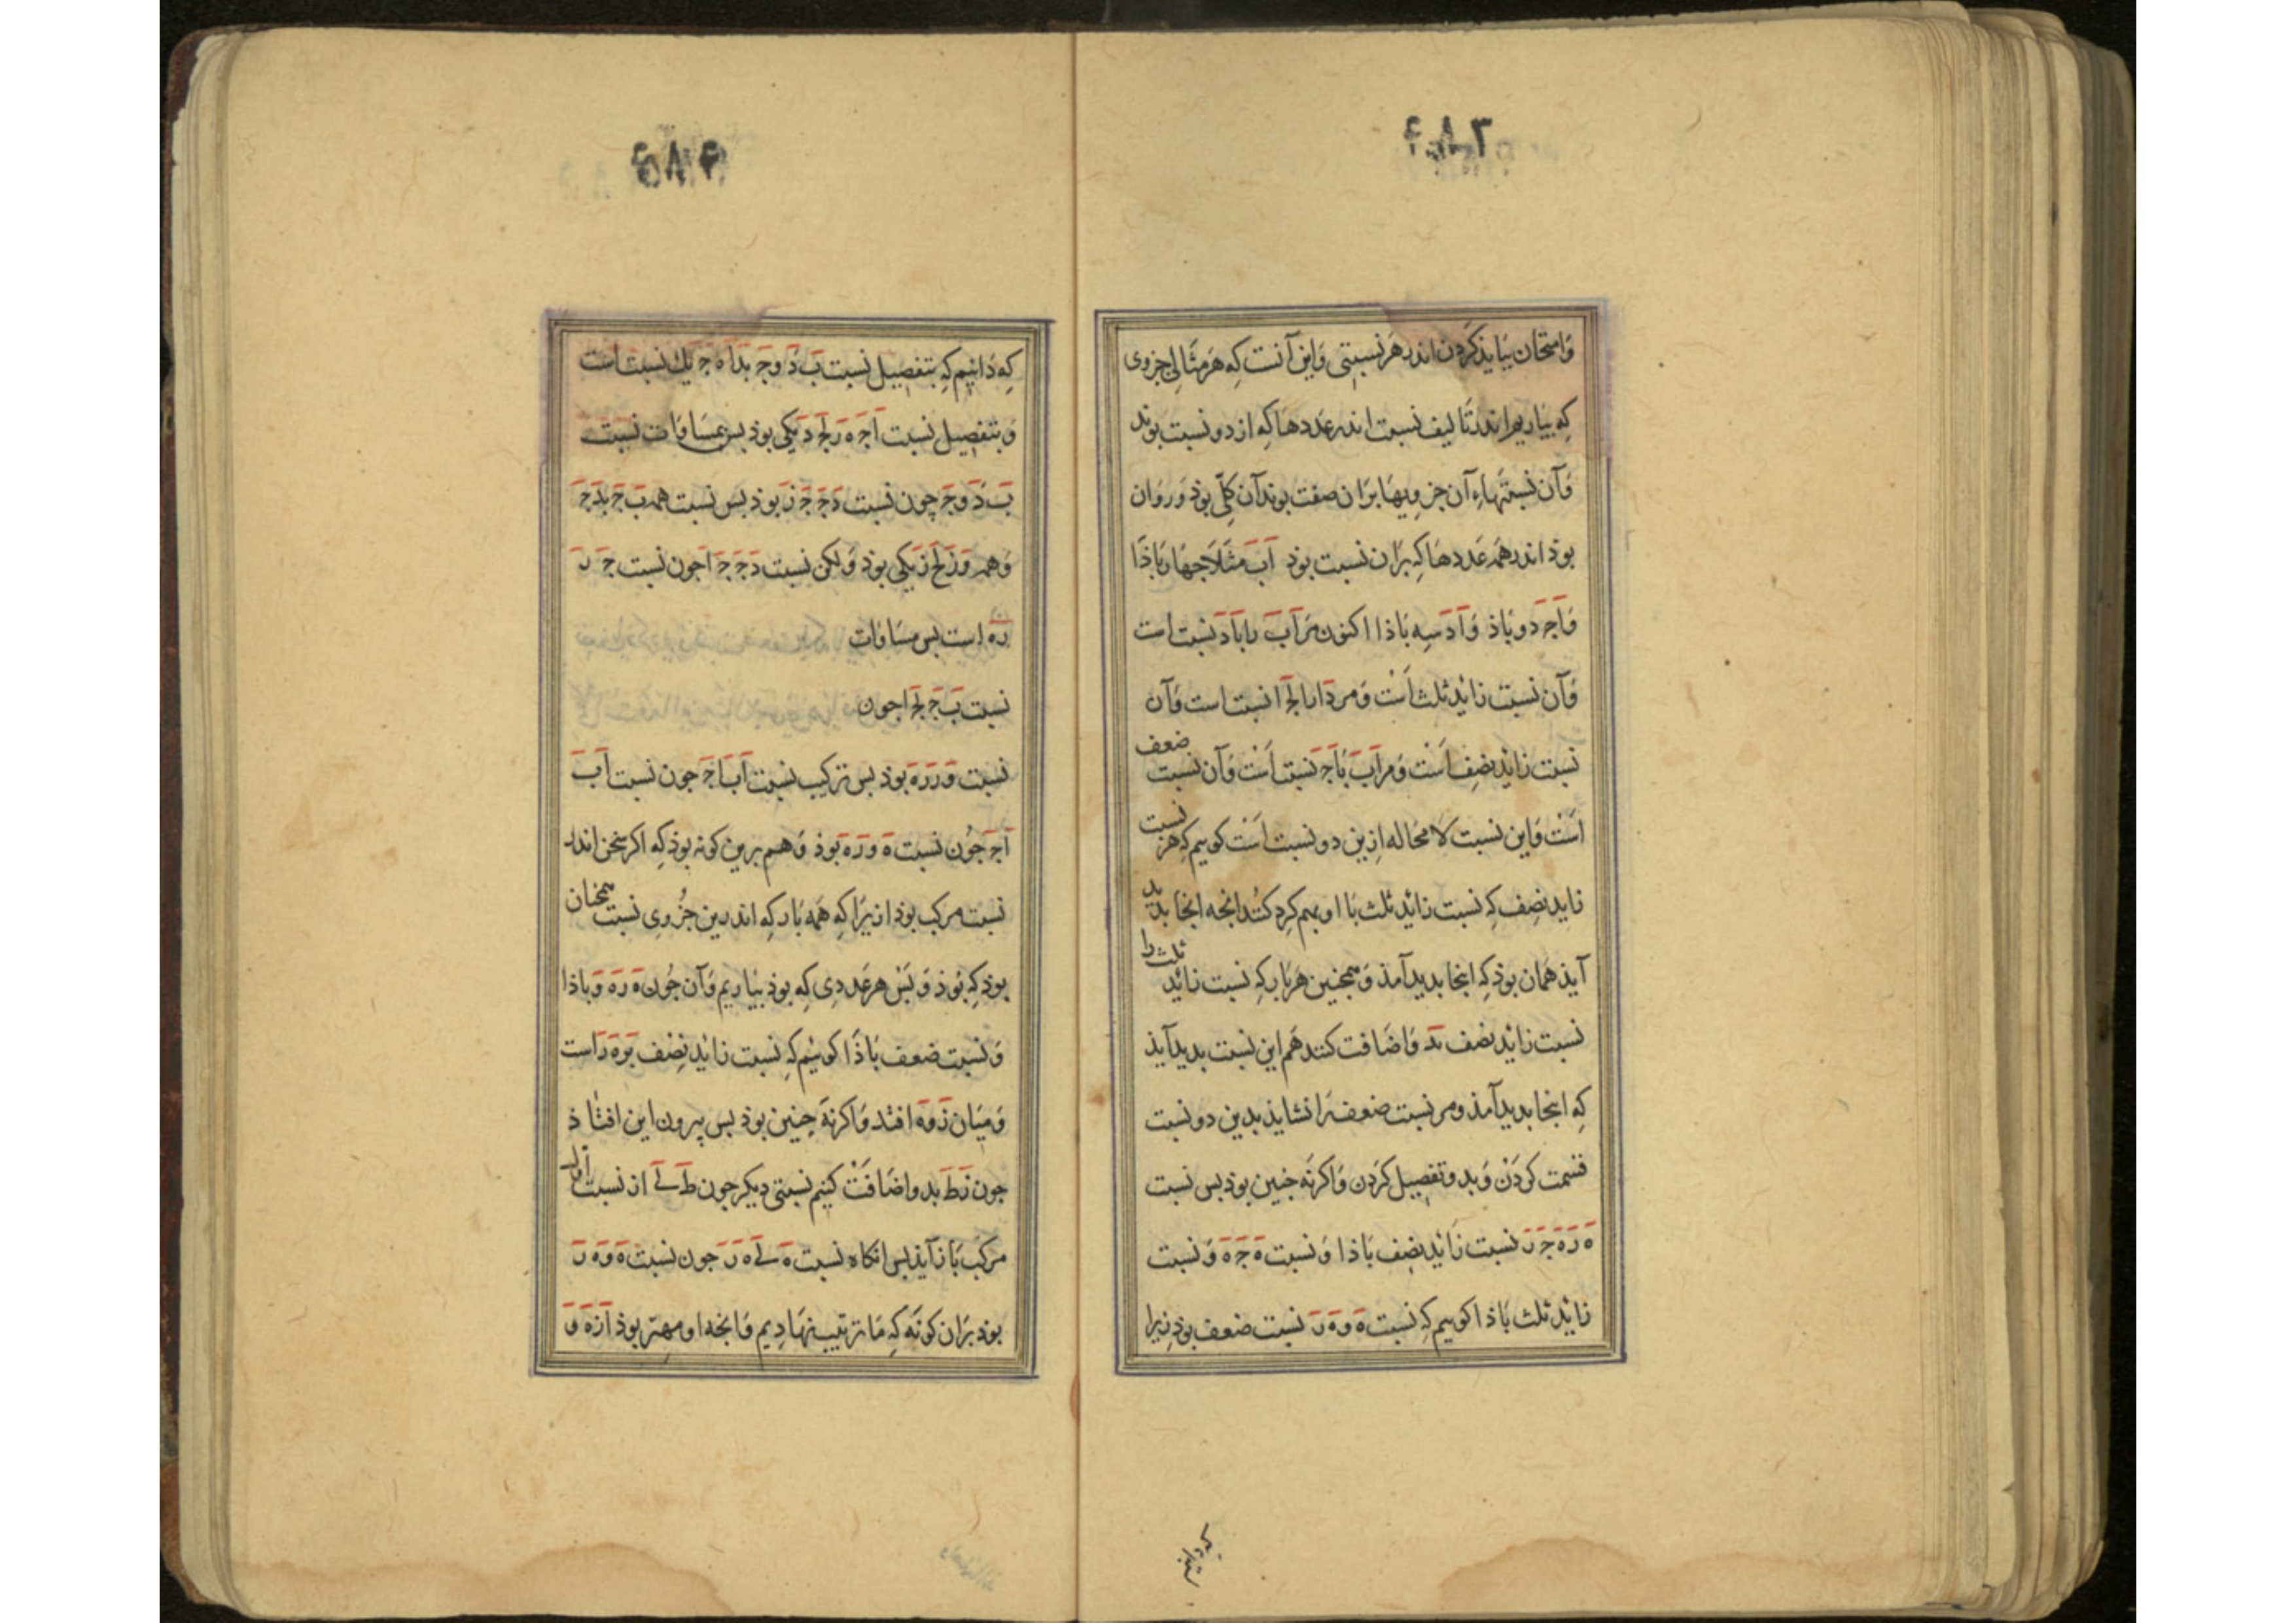 ۴۸۳
وَامتحان بَبَایَذ کَردن اندر هَر نسبتی وَاین آنست کِه هَر مثَالی جزوی
کِه بیَاریم اندر تَالیف نسبت اندر عَددهَا کِه از دو نسبت بوند
وَآن نسبتهَاءِ آن جزویهَا برَان صفت بوند آن کلّی بوذ وَروَان
بوذ اندر همَه عَددهَا کِه برَان نسبت بوذ اَبَ مثَلاَ جهَار بَاذَا
وَاجَ دو بَاذ وَ اَدَ سِه بَاذا اکنون مَر اَبَ را بَادَ نسبت است
وَآن نسبت زائد ثلث اَسْت وَمر دَا را بَجَا نسبت است وَآن
نسبت زائد نصِف اَسْت وَمر اَبَ بَاَجَ نسبت اَسْت وَآن نسبت ضعف
اَسْت وَاین نسبت لَا محَاله ازین دو نسبت اَسْت کوییم کِه هر نسبت
زاید نصِف کِه نسبت زائد ثلث بَا او بهم کرد کنند انجه انجا بدید
آیذ همَان بوذ کِه اینجا بدید آمذ وَهمجنین هَر بَار کِه نسبت زائد ثلث را
نسبت زائد نصف بدَ وَاضَافت کنند هَم این نسبت بدید آیذ
کِه اینجا بدید آمذ ومر نسبت ضعف رَا نشایذ بدین دو نسبت
قسمت کردَنْ وَبدو تفصِیل کَردن وَاکر نَه جنین بوذ بس نسبت
هَ رَ هَ جَ رَ نسبت زَائد نصِف بَاذا وَ نسبت هَ جَ هَ وَ نسبت
زائد ثلث بَاذا کوییم کِه نسبت هَ وَ هَ رَ نسبت ضعف بوذ زیرا
۴۸۴
کِه دَانیم کِه بتفصِیل نسبت بَ دَ وجَ بدَاهَ جَ یك نسبت است
وَبتفصِیل نسبت اَجَ هَ رَ لجَ دَ یَکی بوذ بس بمسَاوَات نسبت
بَ دَ وجَ جون نسبت دَجَ جَ زَ بوذ بس نسبت همه بَ جَ بدَ جَ
وَهمه وَزَ لجَ زَ یَکی بوذ وَلکن نسبت دَجَ جَ اَجون نسبت جَ رَ
رَه است بس مسَاوَات
نسبت بَ جَ لجَ اجون
نسبت وَ رَ رَهَ بوذ بس ترکیب نسبت اَبَ اَجَ جون نسبت اَبَ
اَجَ جُون نسبت هَ وَ رَهَ بوذ وَهم برین کونه بوذ کِه اکر سخن اندر
نسبت مرکب بوذ ازیرَا کِه همَه بَار کِه اندرین جُزوِی نسبت همجنان
بوذ کِه بَوذ وَبَسْ هر عَددِی کِه بوذ بیَاریم وَآن جُون هَ رَهَ وَبَاذا
وَنسبت ضعف بَاذَا کوئیم کِه نسبت زائد نِصْف بَرَهَ رَ است
وَمیَان زَ وَه افتد وَاکر نَه جنین بوذ بس بیرون این افتَاذ
جون زَطَ بدو اضَافَتْ کنیم نسبتی دیکر جون طَ یَ از نسبت اوّل
مرکب بَاز آیذ بس انکاه نسبت هَ یَ هَ رَ جون نسبت هَ وَ هَ رَ
بوذ برَان کونَه کِه مَا ترتیب نهَادیم وَانجه او مهتر بوذ اَزهَ وَ